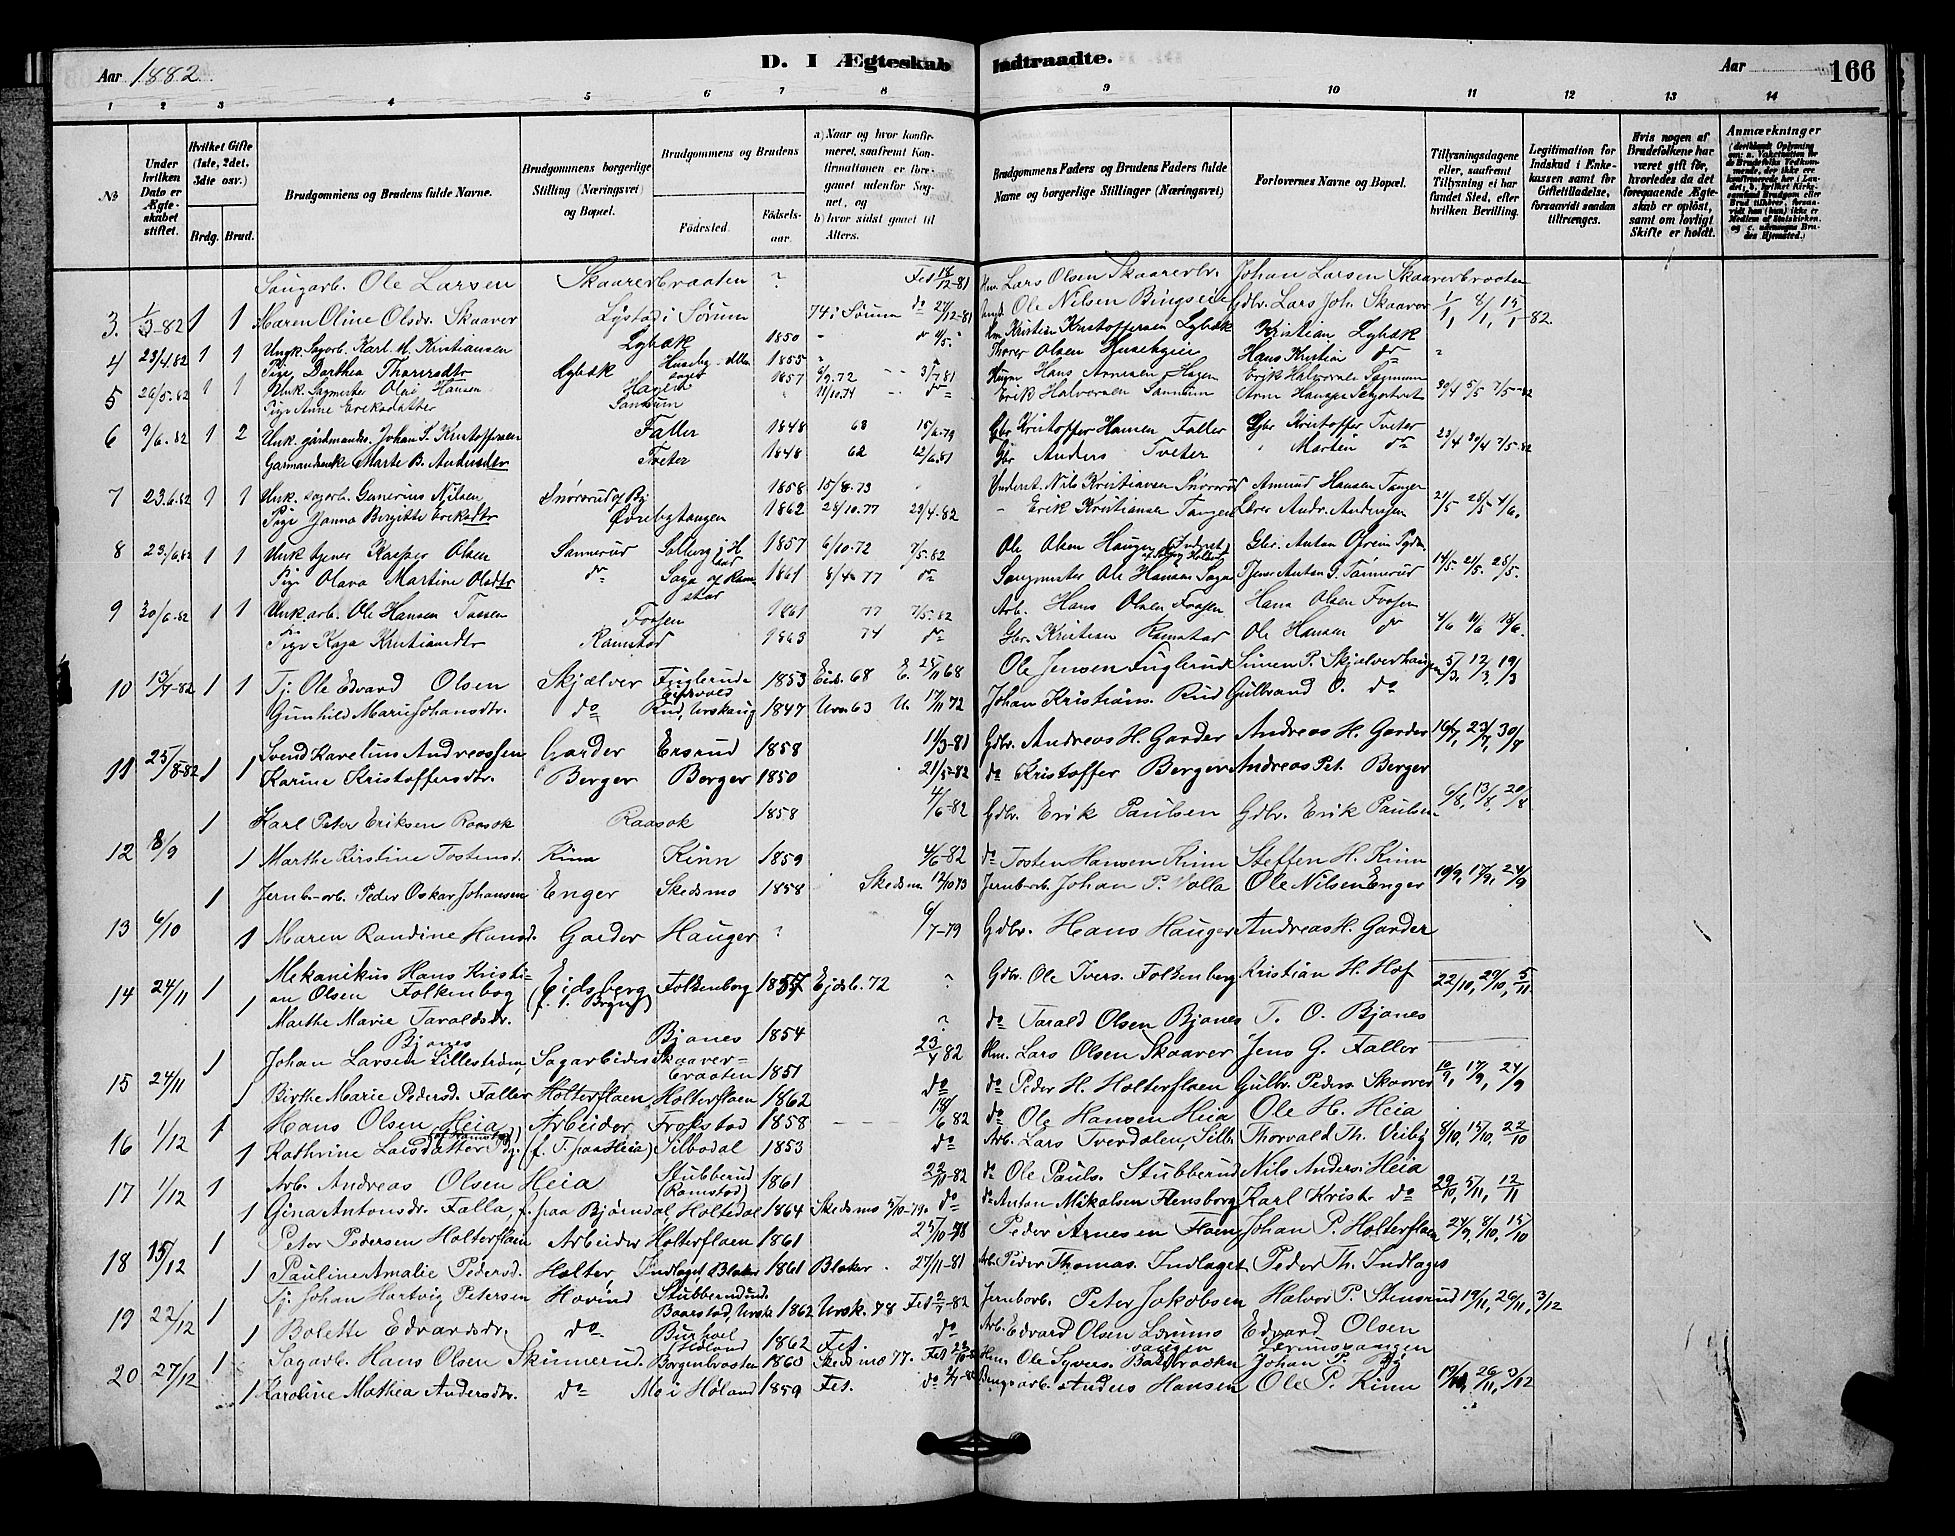 Aar 1882
D. I Ægteskab Indtraadte.
Aar 166
1 2 3 4 5 6 7 8 9 10 11 12 13 14
№
Under hvilken Dato er Ægteskabet stiftet.
Hvilket Gifte (1ste, 2det, 3dte osv.)
Brdg. Brud.
Brudgommens og Brudens fulde Navne.
Brudgommens borgerlige Stilling (Næringsvei) og Bopæl.
Brudgommens og Brudens
Fødested. Fødselsaar.
a) Naar og hvor konfirmeret, saafremt Konfirmationen er foregaaet udenfor Sognet, og
b) hvor sidst gaaet til Alters.
Brudgommens Faders og Brudens Faders fulde Navne og borgerlige Stillinger (Næringsvei)
Forlovernes Navne og Bopæl.
Tillysningsdagene eller, saafremt Tillysning ei har fundet Sted, efter hvilken Bevilling.
Legitimation for Indskud i Enkekassen samt for Giftetilladelse, forsaavidt saadan tiltrænges.
Hvis nogen af Brudefolkene har været gift før, hvorledes da det foregaaende Ægteskab er opløst, samt om lovligt Skifte er holdt.
Anmærkninger
Saugarb. Ole Larsen Skaarerbraaten ? Fet 18/12-81 Hm. Lars Olsen Skaarerbr. Johan Larsen Skaarerbraaten
3. 1/3-82 1 1 Maren Oline Olsdr. Skaarer Lystad i Sørum 74 i Sørum do 27/12-81 Ole Nilsen Bingseie Gdbr. Lars Joh. Skaarer 1/1, 8/1, 15/1-82.
Ungk. Sagarb. Karl M. Kristiansen Lybæk 1850 Hm Kristian Kristoffersen Lybæk Kristian Lybæk
4 23/4.82 1 1 Pige Dorthea Thorersdtr Lybæk Huseby 1855 Thorer Olsen Husebyeie Hans Kristian do
5 26/5.82 1 1 Unk. Sagmester Olai Hansen Hagen 1857 6/9.72 3/7 81 Hans Arnesen Hagen Erik Halvorsen
Pige Anne Eriksdatter Sannum 11/10.74 do Erik Halvorsen Sannum Arne Hansen 30/4 5/5 7/5-82
6 9/6.82 1 2 Unk. gårdmands. Johan S. Kristoffersen Faller 1848 63 15/6.79 Gbr Kristoffer Hansen Faller Gbr Kristoffer Tveter
Garmandsenke Marte B. Andersdtr Tveter 1848 62 12/6.81 Gbr Anders Tveter Martin do 23/4 30/4 7/5.82
7 23.6.82 1 1 Unk. sagarb. Gunerius Nilsen Snørerud af By 1858 15/8.73 Nils Kristiansen Snørerud Amund Hansen Tangen
Pige Janna Bergitte Eriksdtr Øvrebytangen 1862 28/10.77 23/4-82 Erik Kristiansen Tangen Lærer Andr. Andersen 21/5- 28/5 4/6.
8 23./6.82 1 1 Unk tjener Kasper Olsen Sannerud Solberg i H land 1857 6/10.72 7/5.82 Ole Olsen Haugen Gbr. Anton
Pige Olava Martine Olsdtr do Saga af Ramstad 1861 8/4- 77 do Sangmester Ole Hansen Saga Tjener Anton G. Tannerud 14/5. 21/5. 28/5.
9 30/6-82 1 1 Unk. arb. Ole Hansen Fossen Fossen 1861 77 7/5.82 Arb. Hans Olsen Fossen Hans Olsen Fossen
Pige Kaja Kristiansdtr Ramstad 1863 74 do Gbr. Kristian Ramstad Ole Hansen do 4/6 11/6 18/6.
10 13/7-82 1 1 Tj. Ole Edvard Olsen Skjælver Fuglerud Eidsvold 1853 Eid. 68 E. 25/11 68 Ole Jensen Fuglerud Simen P. Skjælverhaugen 5/3, 12/3, 19/3
Gunhild Marie Johansdtr. do Rud, Urskaug 1847 Urs. 63 U. 17/11 72 Johan Kristians. Rud Gulbrand O. do
11 25/8-82 1 1 Svend Karelius Andreassen Garder Ersrud 1858 11/3-81 Gdbr. Andreas H. Garder Andreas H. Garder 16/7, 23/7, 30/7
Karine Kristoffersdtr. Berger Berger 1850 21/5-82 do Kristoffer Berger Andreas Pet. Berger
1 Karl Peter Eriksen Raasok Raasok 1858 4/6-82 Gdbr. Erik Paulsen Gdbr. Erik Paulsen 6/8, 13/8, 20/8
12 8/9 1 Marthe Kirstine Tostensd. Kinn Kinn 1859 4/6-82 do Tosten Hansen Kinn Steffen H. Kinn
1 Jernb.-arb. Peder Oskar Johansen Enger Skedsmo 1858 Skedsm. 12/10 73 Jernb-arb. Johan P. Volla Ole Nilsen Enger 10/9, 17/9, 24/9
13 6/10 1 Maren Randine Hansd. Garder Hauger ? 6/7-79 Gdbr. Hans Hauger Andreas H. Garder
14 24/11 1 Mekanikus Hans Kristian Olsen Folkenbog Eidsberg Folkenborg 1857 Ejdsb. 72 ? Gdbr. Ole Ivers. Folkenborg Kristian H. Hof 22/10, 29/10, 5/11.
1 Marthe Marie Taraldsdr. Bjanes Bjanes 1854 ? do Tarald Olsen Bjanes T. O. Bjanes
15 24/11 1 Johan Larsen Lillestrøm Sagarbeider Skaarerbraaten 1851 23/4 82 Hm. Lars Olsen Skaarer Jens G. Faller
1 Birthe Marie Pedersd. Faller Holterflaen Holterflaen 1862 do do Peder H. Holterflaen Gulbr. Peders. Skaarer 10/9, 17/9, 24/9
16 1/12 1 Hans Olsen Heia Arbeider Frokstad 1858 18/6 82 do Ole Hansen Heia Ole H. Heia
1 Kathrine Larsdatter (f. T. paa Heia) Silbodal 1853 do Arb. Lars Tverdalen, Silb. Thorvald Th. Veiby 8/10, 15/10, 22/10
17 1/12 1 Arb. Andreas Olsen Heia Stubberud (Ramstad) 1861 22/10-82 do Ole Pauls. Stubberud Nils Anders. Heia
1 Gina Antonsdr. Falla, f. paa Bjørndal Holtedal 1864 Skedsmo 5/10-79. do do Anton Mikalsen Flensborg Karl Krist. do 29/10, 5/11, 12/11
18 15/12 1 Peter Pedersen Holterflaen Arbeider Holterflaen 1861 25/10-78 Peder Arnesen Flaen Johan P. Holterflaen 24/9, 8/10, 15/10
1 Pauline Amalie Pedersd. Holter, Indlaget, Blaker 1861 Blaker 27/11-81 Arb. Peder Thomas. Indlaget Peder Th. Indlaget
19 22/12 1 Tj. Johan Hartvig Petersen Hovind Stubberud Baarstad, Ursk. 1862 Ursk. 78 Fet 2/7-82 Jernbarb. Peter Jakobsen Halvor P. Stensrud 19/11, 26/11, 3/12
1 Bolette Edvardsdr. do Burhol Høland 1862 Fet. do Arb. Edvard Olsen Lerumsvangen Edvard Olsen Lerumsvangen
20 27/12 1 Sagarb. Hans Olsen Skinnerud. Borgenbraaten 1860 Skedsmo 77. Fet Hm. Ole Syvers. Johan P. By
1 Karoline Mathea Andersdtr. do Mo i Høland 1859 Fet. do Anders Hansen Ole P. Kinn 19/11, 26/11, 3/12